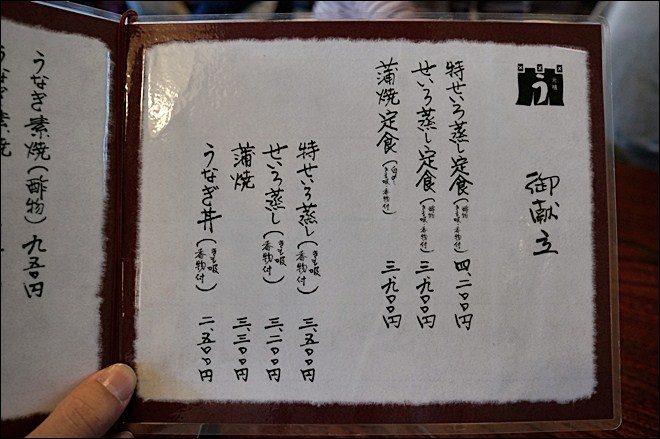 う
御献立
特せいろ蒸し定食(酢物 きも吸・香物付) 四、二〇〇円
せいろ蒸し定食(酢物 きも吸・香物付) 三、九〇〇円
蒲焼定食(きも吸・香物付) 三、九〇〇円
特せいろ蒸し(きも吸 香物付) 三、五〇〇円
せいろ蒸し(きも吸 香物付) 三、二〇〇円
蒲焼 三、三〇〇円
うなぎ丼(きも吸 香物付) 二、五〇〇円
うなぎ素焼(酢物) 九五〇円